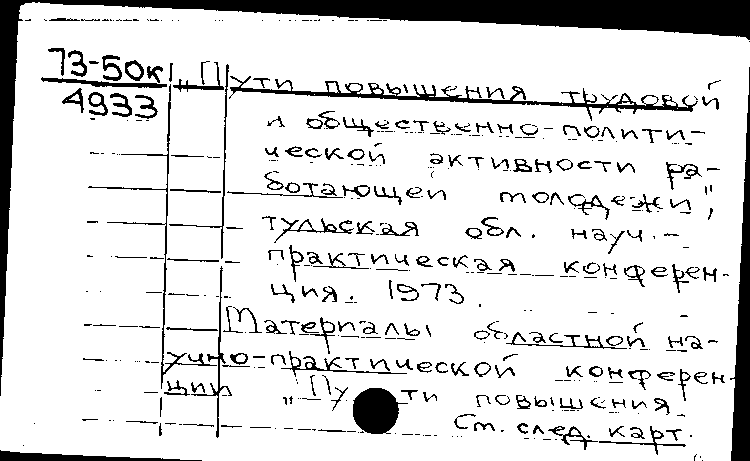 73-50к „Пути повышения трудовой
4933 и общественно-полити-
ческой активности ра-
ботающей молодежи",
тульская обл. науч.-
практическая конферен-
ция. 1973.
Материалы областной на-
учно-практической конферен-
ции „Пути повышения
См. след. карт.